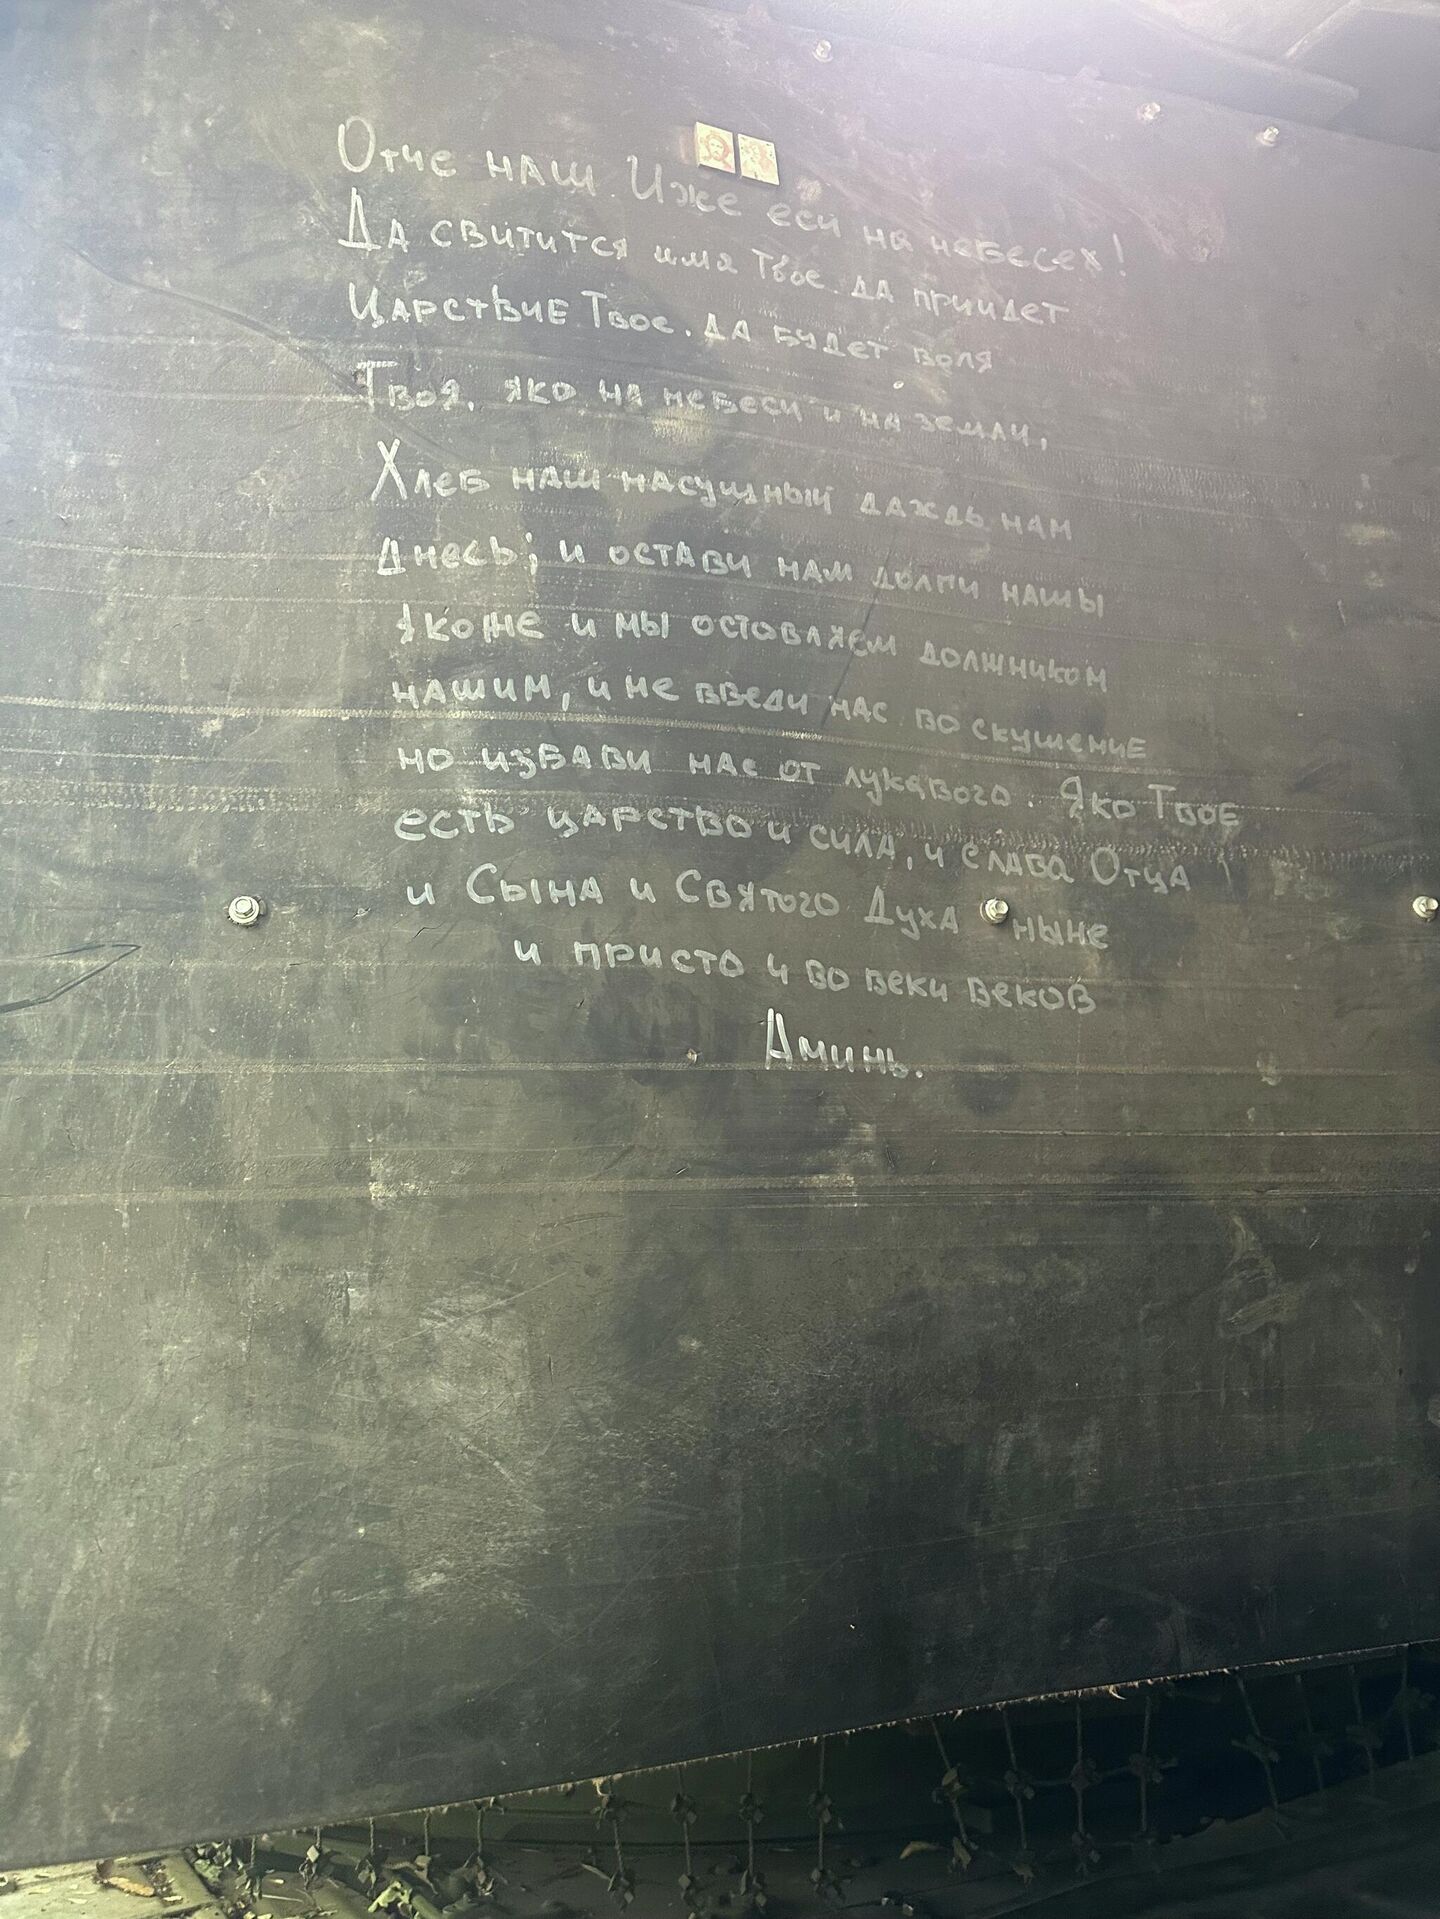 Отче наш Иже еси на небесех!
Да свитится имя Твое. да приидет
Царствие Твое. да будет воля
Твоя, яко на небеси и на земли,
Хлеб наш насущный даждь нам
днесь; и остави нам долги нашы
якоже и мы оставляем должником
нашим, и не введи нас во скушение
но избави нас от лукавого. Яко Твое
есть царство и сила, и слава Отца
и Сына и Святого Духа ныне
и присто и во веки веков
Аминь.